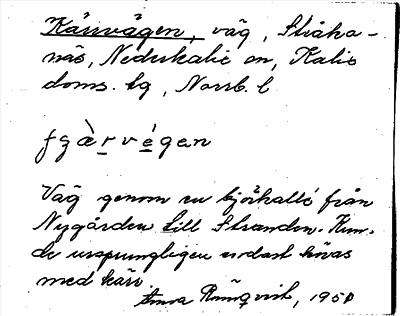 Kärrvägen, väg, Stråka-
näs, Nederkalix sn, Kalix
doms. tg, Norrb. l
fgæ̀rvégan
Väg genom en björkallé från
Nygården till Stranden. Kun-
de ursprungligen endast köras
med kärr.
Anna Rönnqvist, 1950